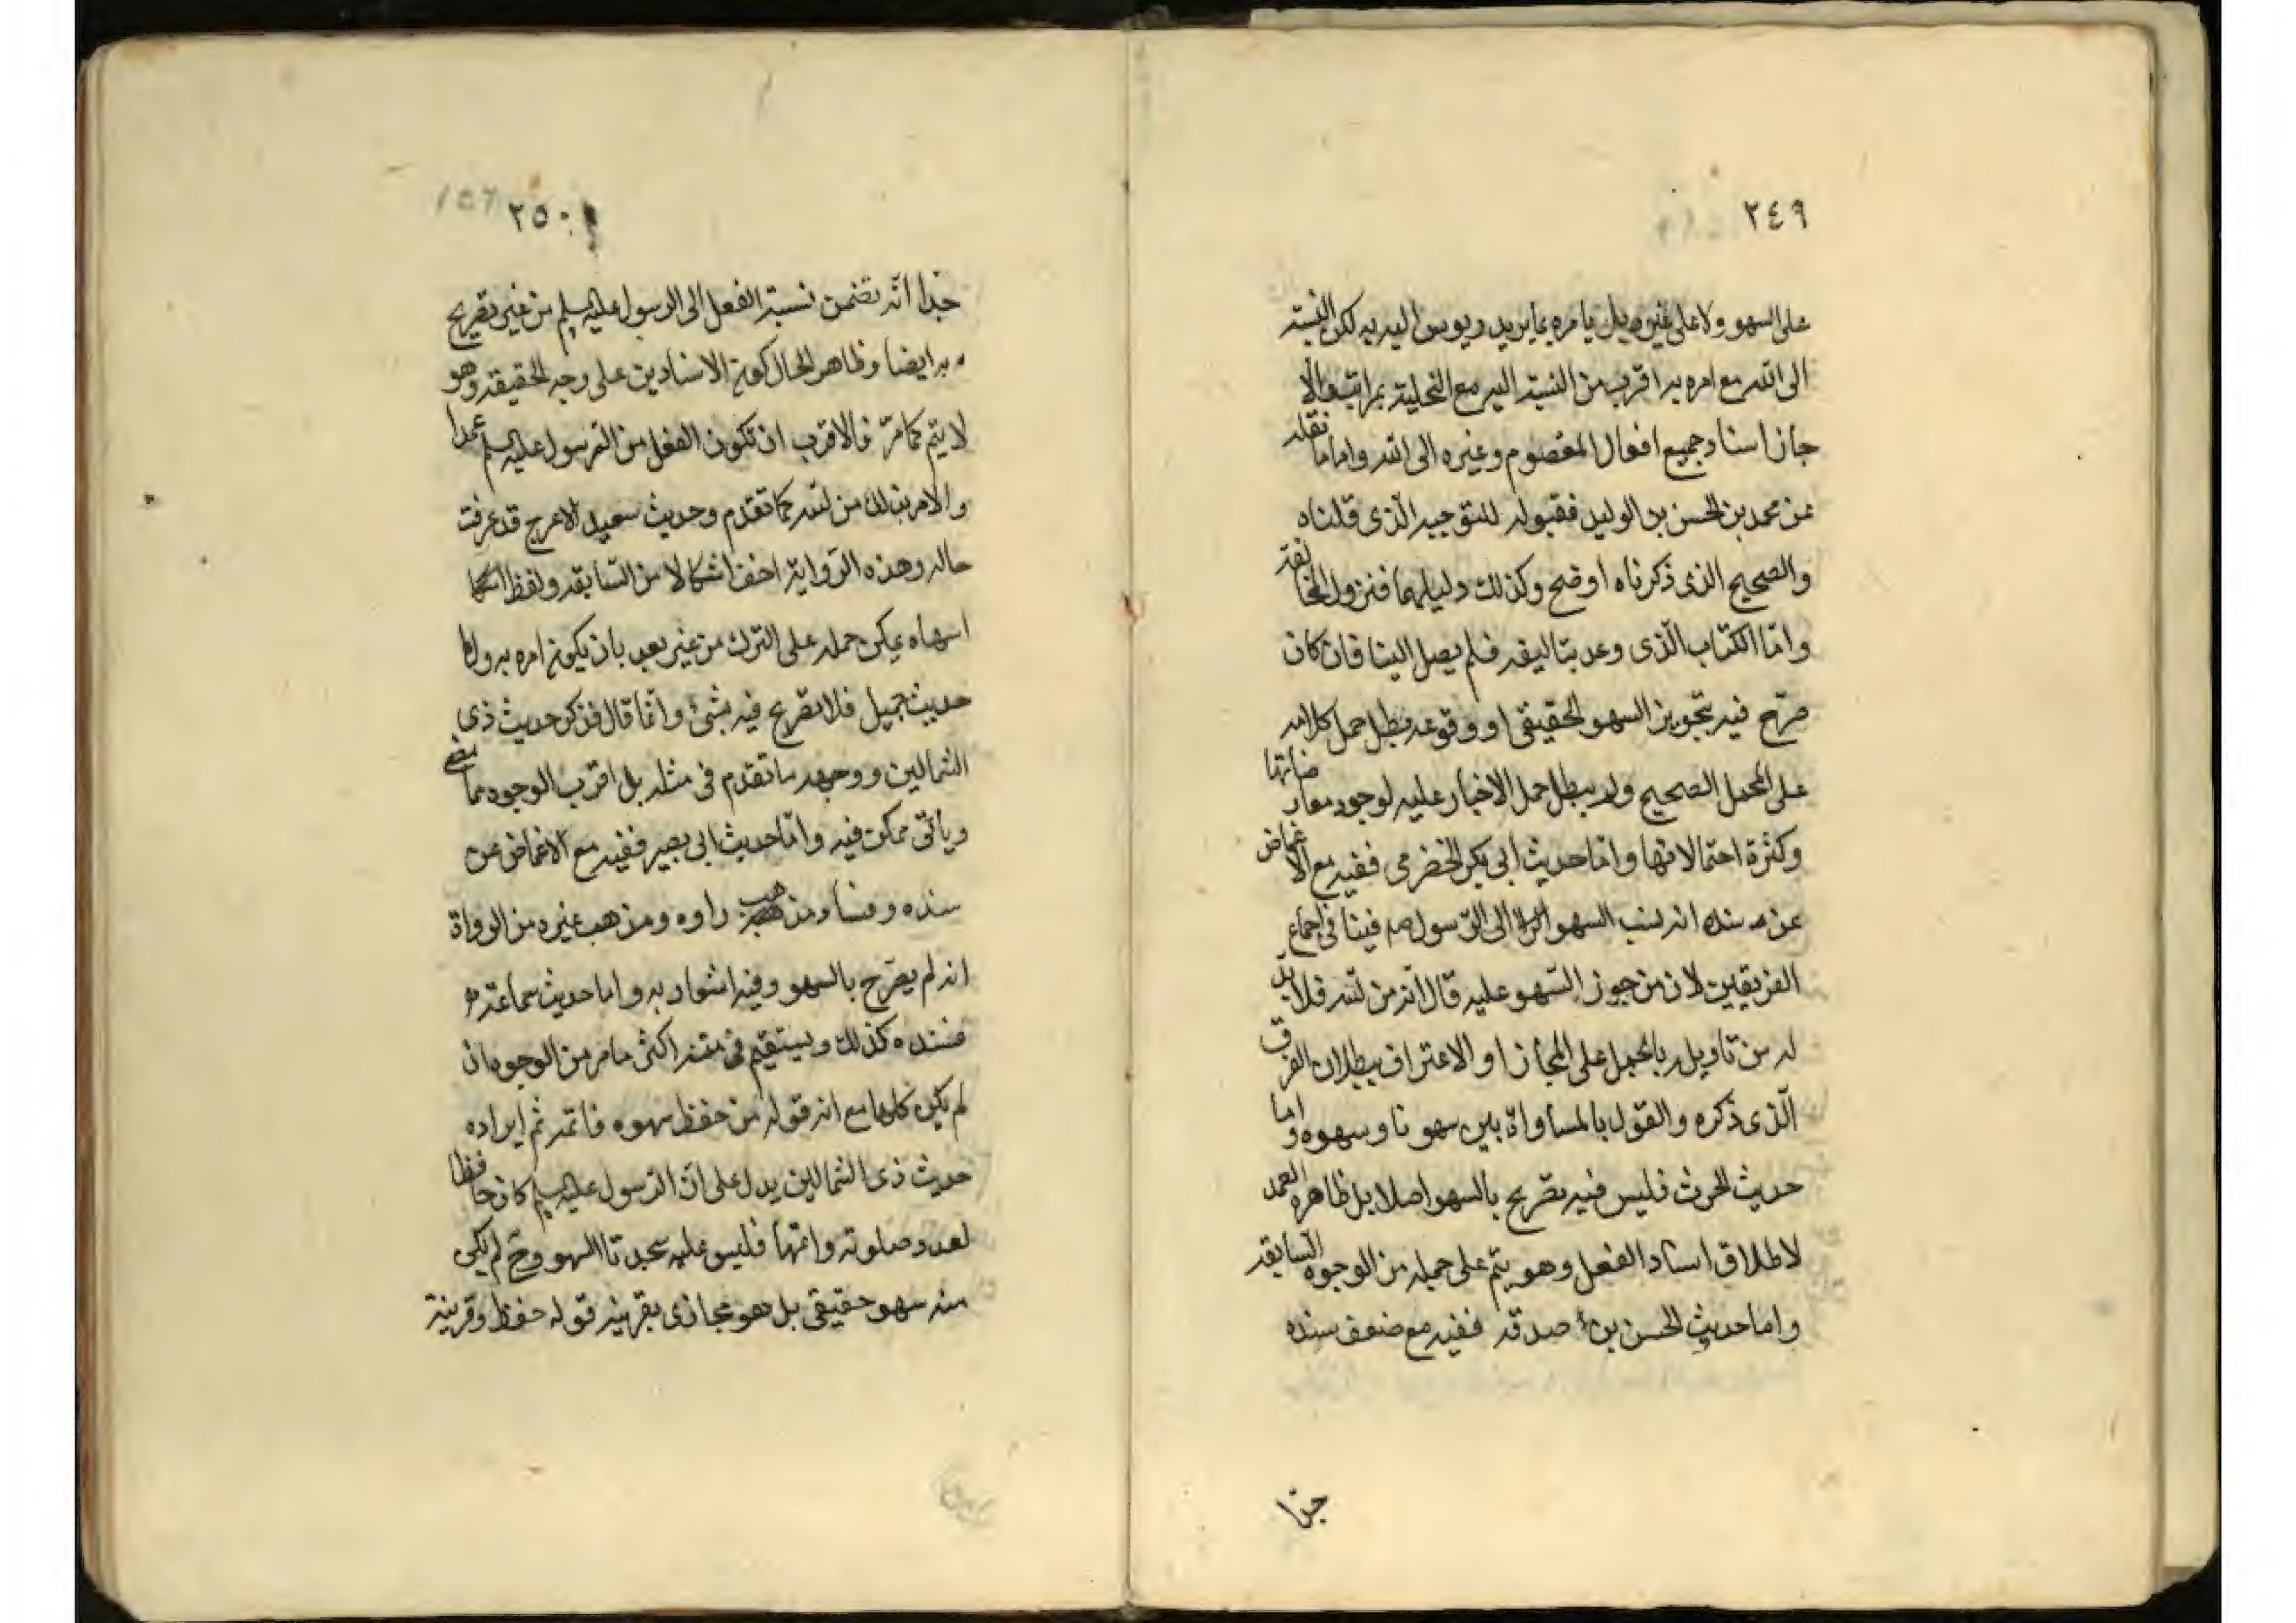 ٢٤٩
على السهو ولا على غيره بل يامره بما يريد ويوحى اليه به لكن النسبة
الى الله مع امره به اقرب من النسبة اليه مع التخلية بمراتب والا
جاز اسناد جميع افعال المعصوم وغيره الى الله واما ما نقله
عن محمد بن الحسن بن الوليد فقبوله للتوجيه الذى قلناه
والصحيح الذى ذكرناه اوضح وكذلك دليلهما فنزول المخالفة
وامّا الكتاب الّذى وعد بتاليفه فلم يصل الينا فان كان
صرّح فيه بتجويز السهو الحقيقى او وقوعه بطل حمل كلامه
على المحمل الصحيح ولم يبطل حمل الاخبار عليه لوجود معارضاتها
وكثرة احتمالاتها وامّا حديث ابى بكر الحضرمى ففيه مع الاغماض
عن سنده انه نسب السهو الى الرّسول ص فينافى اجماع
الفريقين لان من جوز السّهو عليه قال انّه من الله فلا بدّ
له من تاويله بالحمل على المجاز او الاعتراف ببطلان الفرق
الّذى ذكره والقول بالمساواة بين سهونا وسهوه واما
حديث الحرث فليس فيه تصريح بالسهو اصلا بل ظاهره العمد
لاطلاق اسناد الفعل وهو يتم على جمله من الوجوه السابقه
واما حديث الحسن بن صدقه ففيه مع ضعف سنده
جدا
٢٥٠
جدا انّه تضمن نسبة الفعل الى الرسول عليه السلم من غير تصريح
به ايضا وظاهر الحال كون الاسنادين على وجه الحقيقه وهو
لا يتم كما مرّ فالاقرب ان تكون الفعل من الرسول عليه السلم عمدا
والامر بذلك من الله كما تقدم وحديث سعيد الاعرج قد عرفت
حاله وهذه الرّواية اخف اشكالا من السّابقه ولفظ
اسهاه يمكن حمله على الترك من غير بعد بان يكون امره به
حديث جميل فلا تصريح فيه بشئ وانّما قال فذكر حديث ذى
الشمالين ووجهه ما تقدم فى مثله بل اقرب الوجوه مما مضى
وياتى ممكن فيه وامّا حديث ابى بصير ففيه مع الاغماض عن
سنده وفساد مذهب راوه ومذهب غيره من الرواة
انه لم يصرّح بالسهو وفيه اشعار به واما حديث سماعة
فسنده كذلك ويستقيم فى متنه اكثر ما مر من الوجوه ان
لم يكن كلها مع ان قوله من حفظ سهوه فاتمه ثم ايراده
حديث ذى الشمالين يدل على انّ الرّسول عليه السلم كان حافظا
لعدد صلوته واتمها فليس عليه سجدتا السهو وح لم يكن
منه سهو حقيقى بل هو مجازى بقرينه قوله حفظ وقرينة